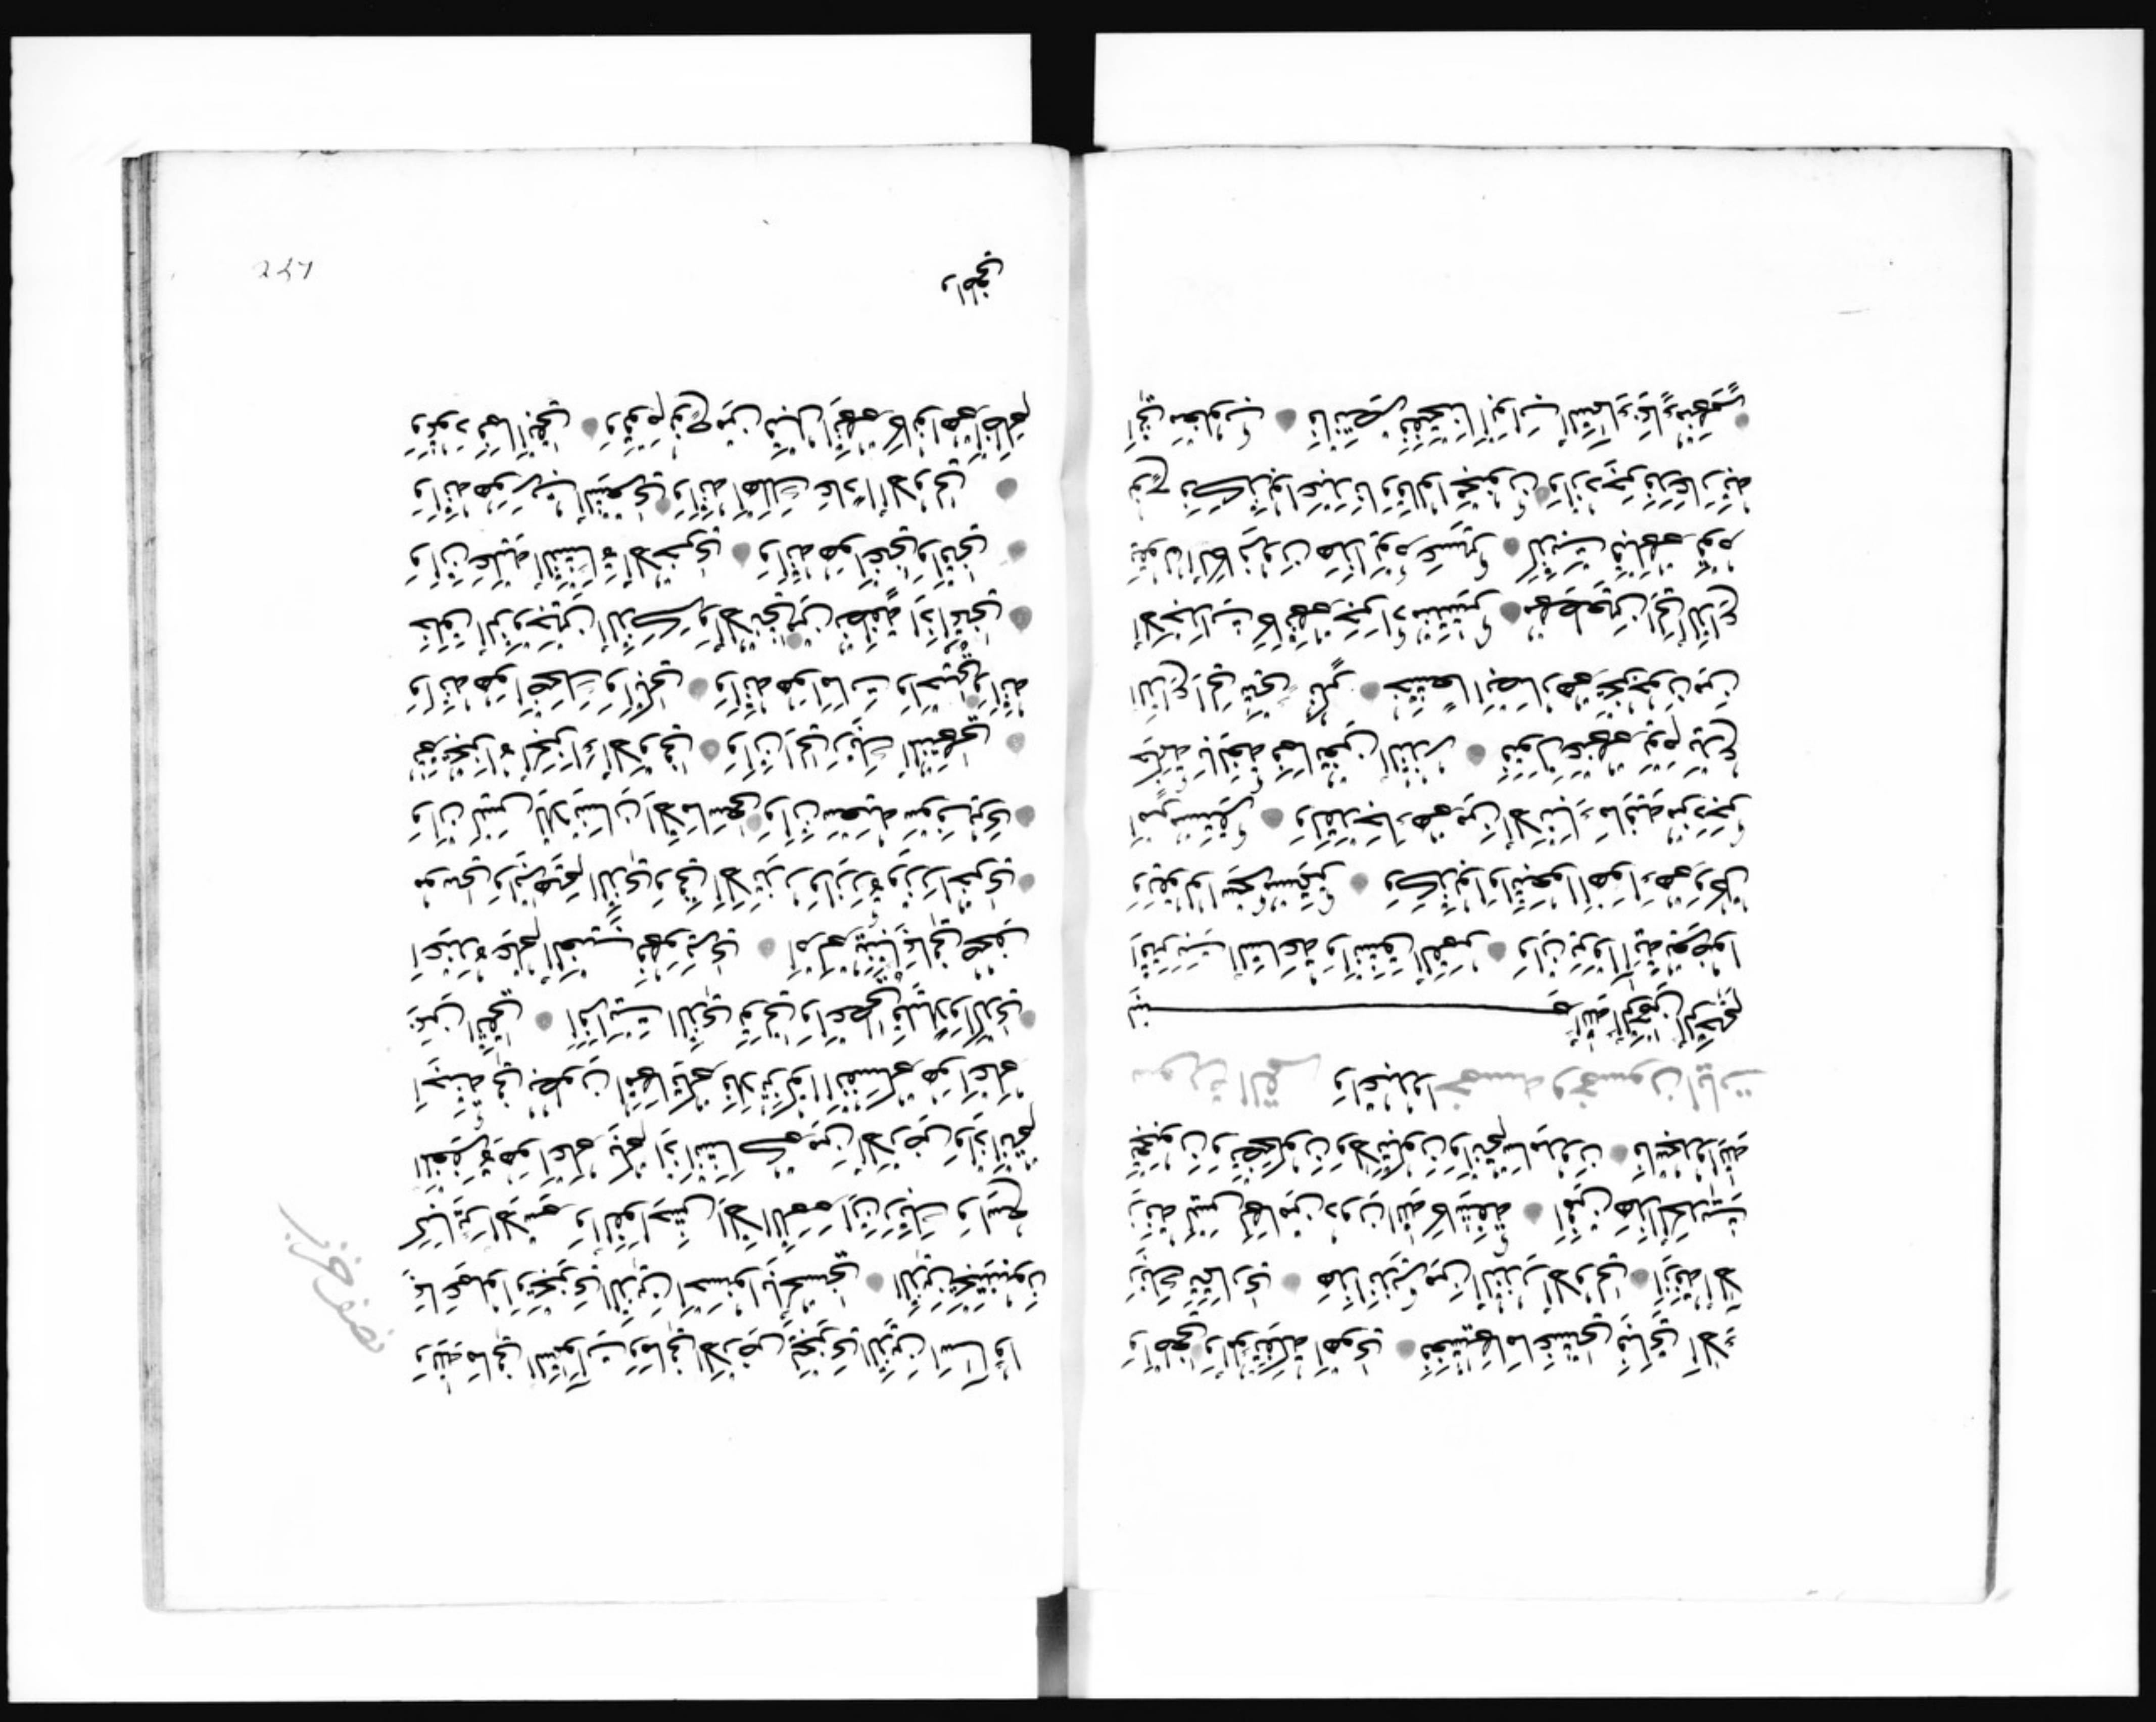 ولله ما في السموات وما في الارض ليجزي الذين اساؤا
بما عملوا ويجزي الذين احسنوا بالحسنى الذين يجتنبون
كبائر الاثم والفواحش الا اللمم ان ربك واسع
المغفرة هو اعلم بكم اذ انشاكم من الارض واذ انتم
اجنة في بطون امهاتكم فلا تزكوا انفسكم هو اعلم
بمن اتقى افرايت الذي تولى واعطى قليلا واكدى
اعنده علم الغيب فهو يرى ام لم ينبا بما في صحف
موسى وابراهيم الذي وفى الا تزر وازرة وزر اخرى
وان ليس للانسان الا ما سعى وان سعيه سوف يرى
ثم يجزاه الجزاء الاوفى وان الى ربك المنتهى
وانه هو اضحك وابكى وانه هو امات واحيى وانه
خلق الزوجين الذكر والانثى من نطفة اذا تمنى
وان عليه النشاة الاخرى وانه هو اغنى واقنى
وانه هو رب الشعرى وانه اهلك عادا الاولى
وثمود فما ابقى وقوم نوح من قبل انهم كانوا هم اظلم
واطغى
نصف حزب
واطغى والمؤتفكة اهوى فغشاها ما غشى فباي الاء
ربك تتمارى هذا نذير من النذر الاولى ازفت الا
زفة ليس لها من دون الله كاشفة افمن هذا الحديث
تعجبون وتضحكون ولا تبكون وانتم سامدون فاسجدوا لله
سورة القمر واعبدوا خمسة وخمسون ايات
بسم الله الرحمن الرحيم
اقتربت الساعة وانشق القمر وان يروا اية يعرضوا
ويقولوا سحر مستمر وكذبوا واتبعوا اهواءهم وكل
امر مستقر ولقد جاءهم من الانباء ما فيه مزدجر
حكمة بالغة فما تغن النذر فتول عنهم يوم يدع
الداع الى شيء نكر خشعا ابصارهم يخرجون من
الاجداث كانهم جراد منتشر مهطعين الى الداع
يقول الكافرون هذا يوم عسر كذبت قبلهم قوم
نوح فكذبوا عبدنا وقالوا مجنون وازدجر فدعا ربه
اني مغلوب فانتصر ففتحنا ابواب السماء بماء منهمر